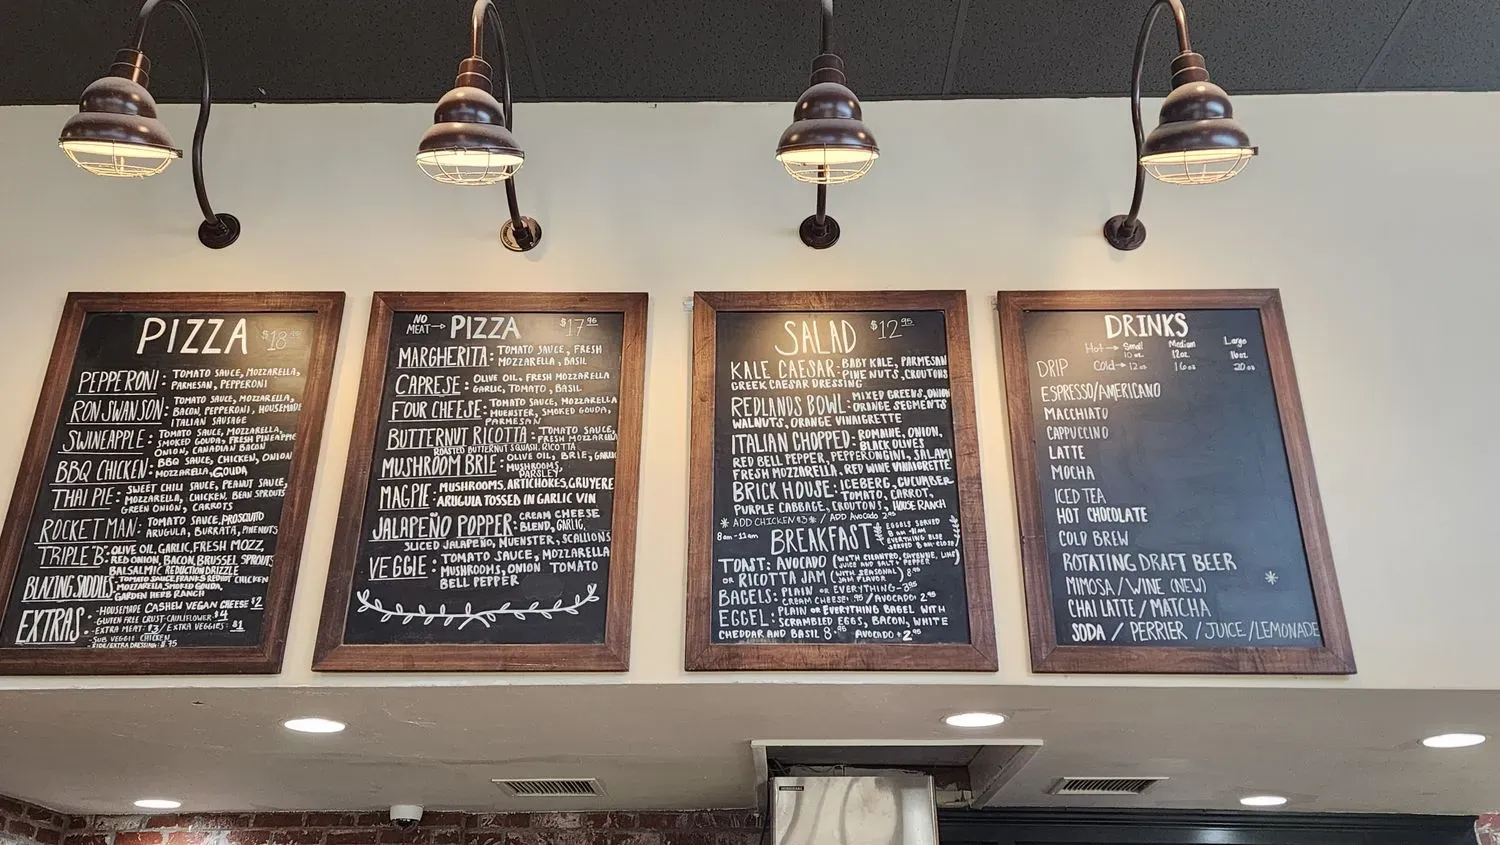 PIZZA $18.95
PEPPERONI: TOMATO SAUCE, MOZZARELLA,
PARMESAN, PEPPERONI
RON SWANSON: TOMATO SAUCE, MOZZARELLA,
BACON, PEPPERONI, HOUSEMADE
ITALIAN SAUSAGE
SWINEAPPLE: TOMATO SAUCE, MOZZARELLA,
SMOKED GOUDA, FRESH PINEAPPLE
ONION, CANADIAN BACON
BBQ CHICKEN: BBQ SAUCE, CHICKEN, ONION
MOZZARELLA, GOUDA
THAI PIE: SWEET CHILI SAUCE, PEANUT SAUCE,
MOZZARELLA, CHICKEN, BEAN SPROUTS
GREEN ONION, CARROTS
ROCKET MAN: TOMATO SAUCE, PROSCIUTTO
ARUGULA, BURRATA, PINENUTS
TRIPLE "B": OLIVE OIL, GARLIC, FRESH MOZZ,
RED ONION, BACON, BRUSSEL SPROUTS
BALSALMIC REDUCTION DRIZZLE
BLAZING SADDLES: TOMATO SAUCE, FRANKS REDHOT CHICKEN
MOZZARELLA, SMOKED GOUDA,
GARDEN HERB RANCH
EXTRAS: - HOUSEMADE CASHEW VEGAN CHEESE $2
- GLUTEN FREE CRUST-CAULIFLOWER $4
- EXTRA MEAT: $3 / EXTRA VEGGIES: $1
- SUB VEGGIE CHICKEN
- SIDE/EXTRA DRESSING: $.75
NO MEAT → PIZZA $17.95
MARGHERITA: TOMATO SAUCE, FRESH
MOZZARELLA, BASIL
CAPRESE: OLIVE OIL, FRESH MOZZARELLA
GARLIC, TOMATO, BASIL
FOUR CHEESE: TOMATO SAUCE, MOZZARELLA
MUENSTER, SMOKED GOUDA,
PARMESAN
BUTTERNUT RICOTTA: TOMATO SAUCE,
FRESH MOZZARELLA
ROASTED BUTTERNUT SQUASH, RICOTTA
MUSHROOM BRIE: OLIVE OIL, BRIE, GARLIC
MUSHROOMS,
PARSLEY
MAGPIE: MUSHROOMS, ARTICHOKES, GRUYERE
ARUGULA TOSSED IN GARLIC VIN
JALAPEÑO POPPER: CREAM CHEESE
BLEND, GARLIC,
SLICED JALAPEÑO, MUENSTER, SCALLIONS
VEGGIE: TOMATO SAUCE, MOZZARELLA
MUSHROOMS, ONION TOMATO
BELL PEPPER
SALAD $12.95
KALE CAESAR: BABY KALE, PARMESAN
PINE NUTS, CROUTONS
GREEK CAESAR DRESSING
REDLANDS BOWL: MIXED GREENS, ONION
ORANGE SEGMENTS
WALNUTS, ORANGE VINAIGRETTE
ITALIAN CHOPPED: ROMAINE, ONION,
BLACK OLIVES
RED BELL PEPPER, PEPPERONCINI, SALAMI
FRESH MOZZARELLA, RED WINE VINAIGRETTE
BRICK HOUSE: ICEBERG, CUCUMBER
TOMATO, CARROT,
PURPLE CABBAGE, CROUTONS, HOUSE RANCH
* ADD CHICKEN $3 * / ADD Avocado 2.95
8am-11am BREAKFAST
BAGELS SERVED
8 am - 11 am
EVERYTHING ELSE
SERVED 8 am-CLOSE
TOAST: AVOCADO (WITH CILANTRO, CAYENNE, LIME
JUICE AND SALT + PEPPER)
OR RICOTTA JAM (WITH SEASONAL
JAM FLAVOR) 8.95
BAGELS: PLAIN OR EVERYTHING - 3.95
CREAM CHEESE: .95 / AVOCADO: 2.95
EGGEL: PLAIN OR EVERYTHING BAGEL WITH
SCRAMBLED EGGS, BACON, WHITE
CHEDDAR AND BASIL 8.95 AVOCADO + 2.95
DRINKS
Hot → Small Medium Large
10 oz. 12oz. 16oz
DRIP Cold → 12 oz 16 oz 20 oz
ESPRESSO/AMERICANO
MACCHIATO
CAPPUCCINO
LATTE
MOCHA
ICED TEA
HOT CHOCOLATE
COLD BREW
ROTATING DRAFT BEER
MIMOSA / WINE (NEW) *
CHAI LATTE / MATCHA
SODA / PERRIER / JUICE / LEMONADE